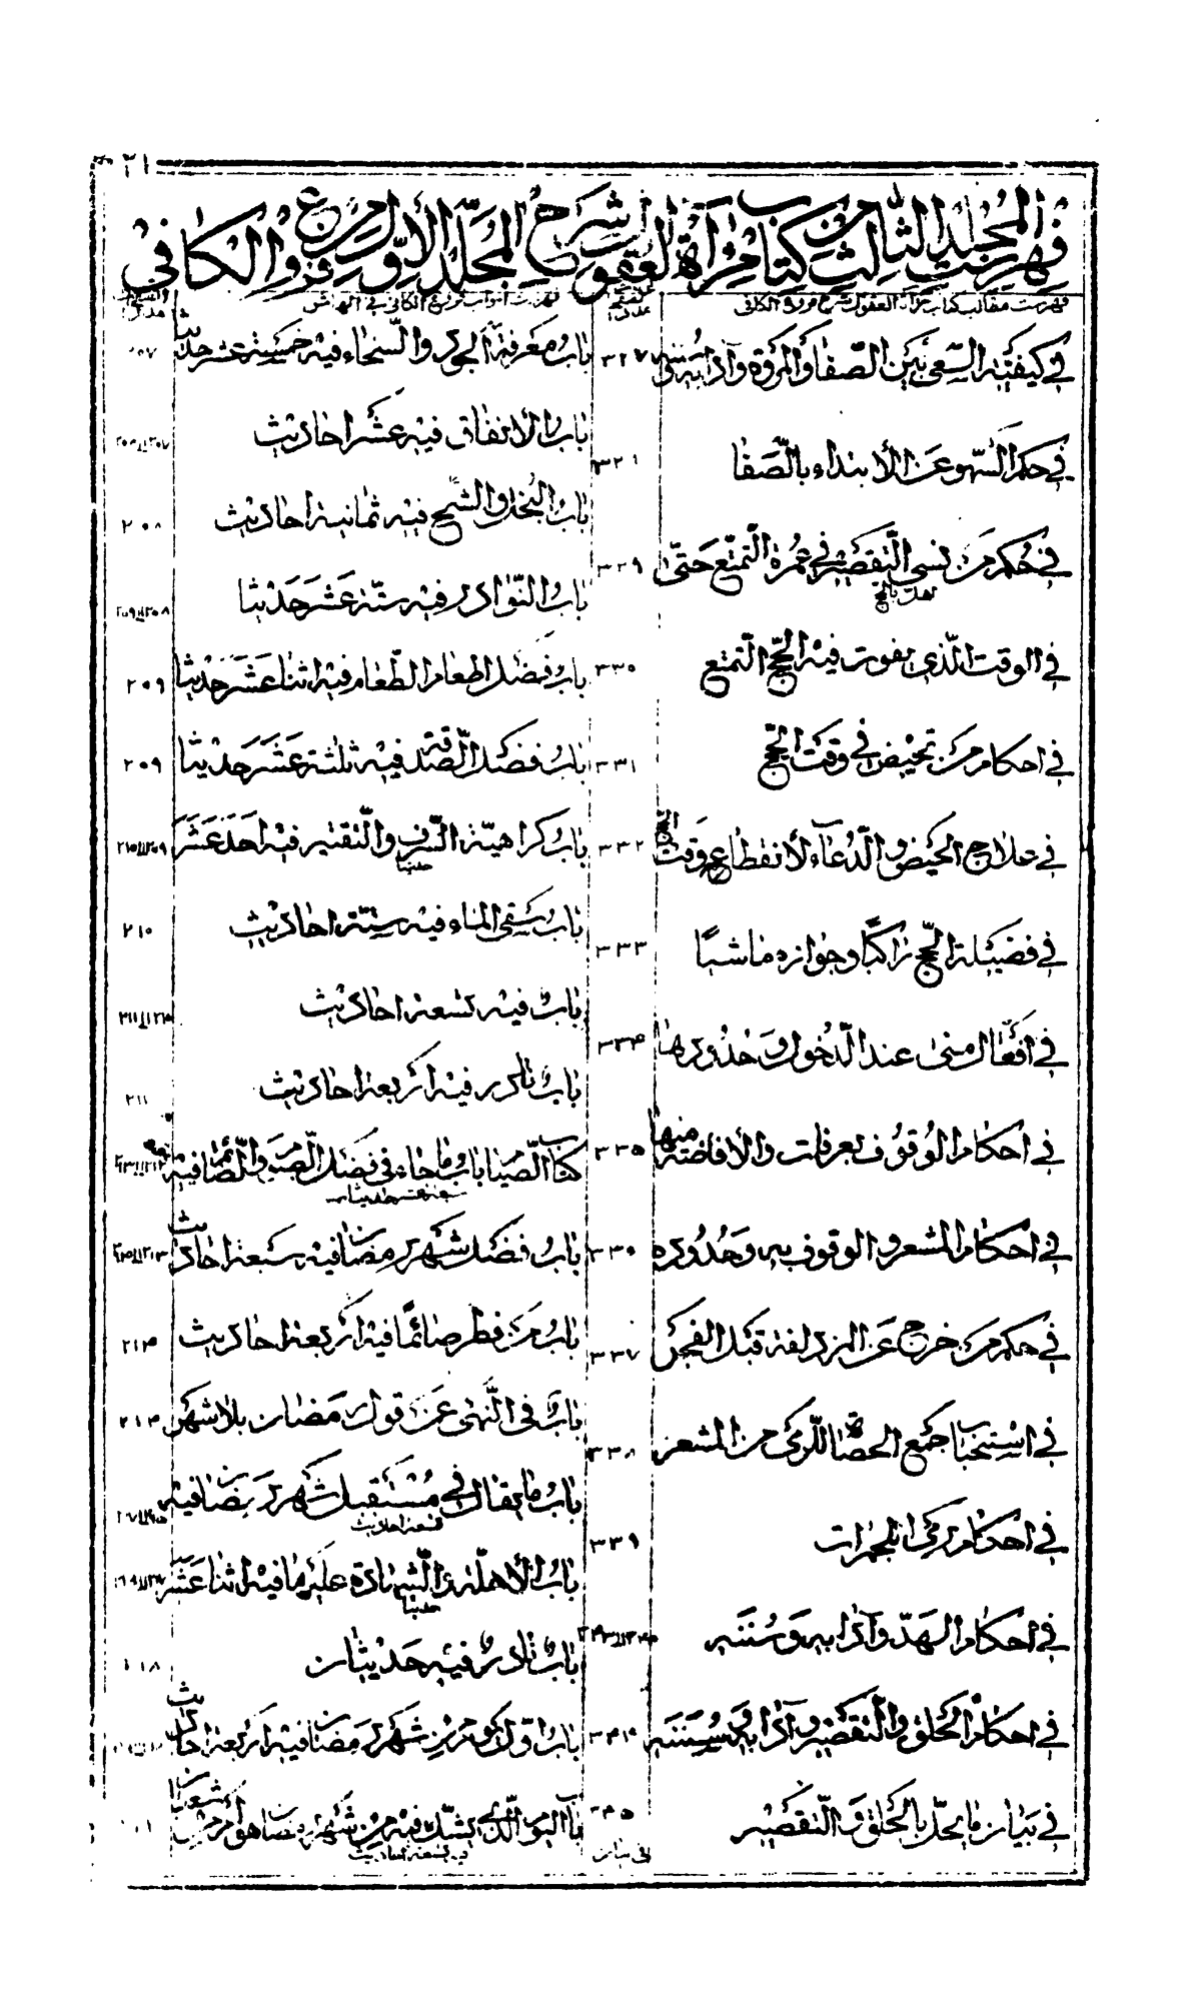 ٢١
فهرست المجلد الثالث من كتاب مرآة العقول شرح المجلد الأول من فروع الكافي
فهرست مطالب كتاب مرآة العقول شرح فروع الكافي
في كيفيّة السّعي بين الصّفا والمروة وآدابه وسننه ٣٢٧
في حكم السّهو عن الابتداء بالصّفا ٣٢١
في حكم من نسي التّقصير في عمرة التّمتّع حتّى ٣٢٩
يهلّ بالحجّ
في الوقت الّذي يفوت فيه الحجّ التمتع ٣٣٠
في احكام من تحيض في وقت الحجّ ٣٣١
في علاج الحيض والدّعاء لانقطاعه وقت الحج ٣٣٢
في فضيلة الحّج راكبًا وجوازه ماشيًا ٣٣٣
في افعال منى عند الدّخول وحدودها ٣٣۴
في احكام الوقوف بعرفات والافاضة منها ٣٣٥
في احكام المشعر والوقوف به وحدوده ٣٣٠
في حكم من خرج عن المزدلفة قبل الفجر ٣٣٧
في استحباب جمع الحصاة للرّمي من المشعر ٣٣٨
في احكام رمي الجمرات ٣٣٩
في احكام الهدّ وآدابه وسننه
في احكام الحلق والتقصير وآدابه وسننه ٣۴۴
في بيان ما يحلّ بالحلق والتقصير ٣۴٥
فهرست ابواب فروع الكافي في الهامش
باب معرفة الجود والسّخاء فيه خمسة عشر حديث ٢٠٧
باب الانفاق فيه عشر احاديث
باب البخل والشّح فيه ثمانية احاديث ٢٠٨
باب النّوادر فيه ستة عشر حديثا
باب فضل اطعام الطّعام فيه اثنا عشر حديثا ٢٠٩
باب فضل الصّدقة فيه ثلثة عشر حديثا ٢٠٩
باب كراهيّة السّرف والتّقتير فيه احد عشر
حديثا
باب سقي الماء فيه ستة احاديث ٢١٠
باب فيه تسعة احاديث
باب نادر فيه اربعة احاديث ٢١١
كتاب الصّيام باب ما جاء في فضل الصّوم والصّائم فيه
سبعة عشر حديثا
باب فضل شهر رمضان فيه سبعة احاديث
باب من فطر صائمًا فيه اربعة احاديث ٢١۴
باب في النّهي عن قول رمضان بلا شهر ٢١۴
باب ما يقال في مستقبل شهر رمضان فيه
تسعة احاديث
باب الأهلّة والشّهادة عليها فيه اثنا عشر
حديثا
باب نادر فيه حديثان
باب اوّل يوم من شهر رمضان فيه اربعة احاديث
باب اليوم الّذي يشكّ فيه من شهر رمضان هو أم من شعبان
فيه تسعة احاديث